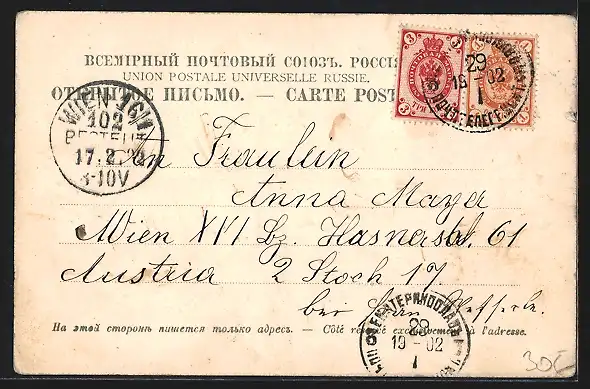 ВСЕМІРНЫЙ ПОЧТОВЫЙ СОЮЗЪ. РОССІЯ
UNION POSTALE UNIVERSELLE RUSSIE.
ОТКРЫТОЕ ПИСЬМО. — CARTE POST
3 3
ТРИ
29
19 - 02
1
WIEN 16/1
102
BESTELLT
17. 2. 02
8-10V
Fräulein
Anna Mayer
Wien XVI Bz. Hasnerstr. 61
Austria 2 Stock 17.
bei
На этой сторонѣ пишется только адресъ. — Côté réservé exclusivement à l'adresse.
29
19 - 02
1
30€